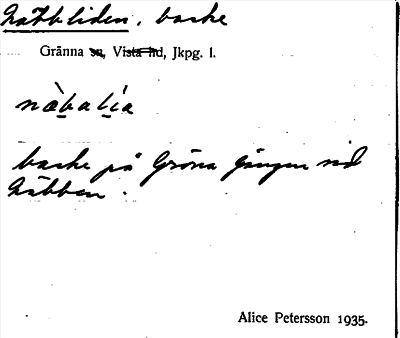 Näbbliden, backe
Gränna sn, Vista hd, Jkpg. l.
næ̀baḷía
backe på Gröna Gången vid
Näbben.
Alice Petersson 1935.